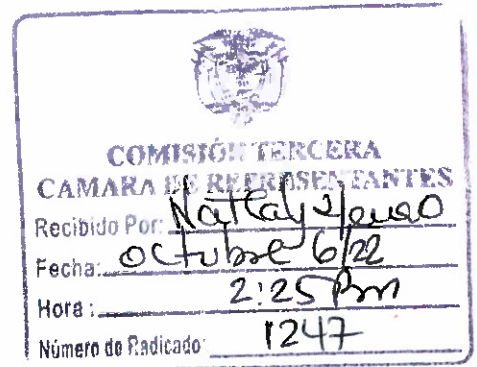 COMISIÓN TERCERA
CAMARA DE REPRESENTANTES
Recibido Por: Nataly
Fecha: octubre 6/22
Hora: 2:25 Pm
Número de Radicado: 1247